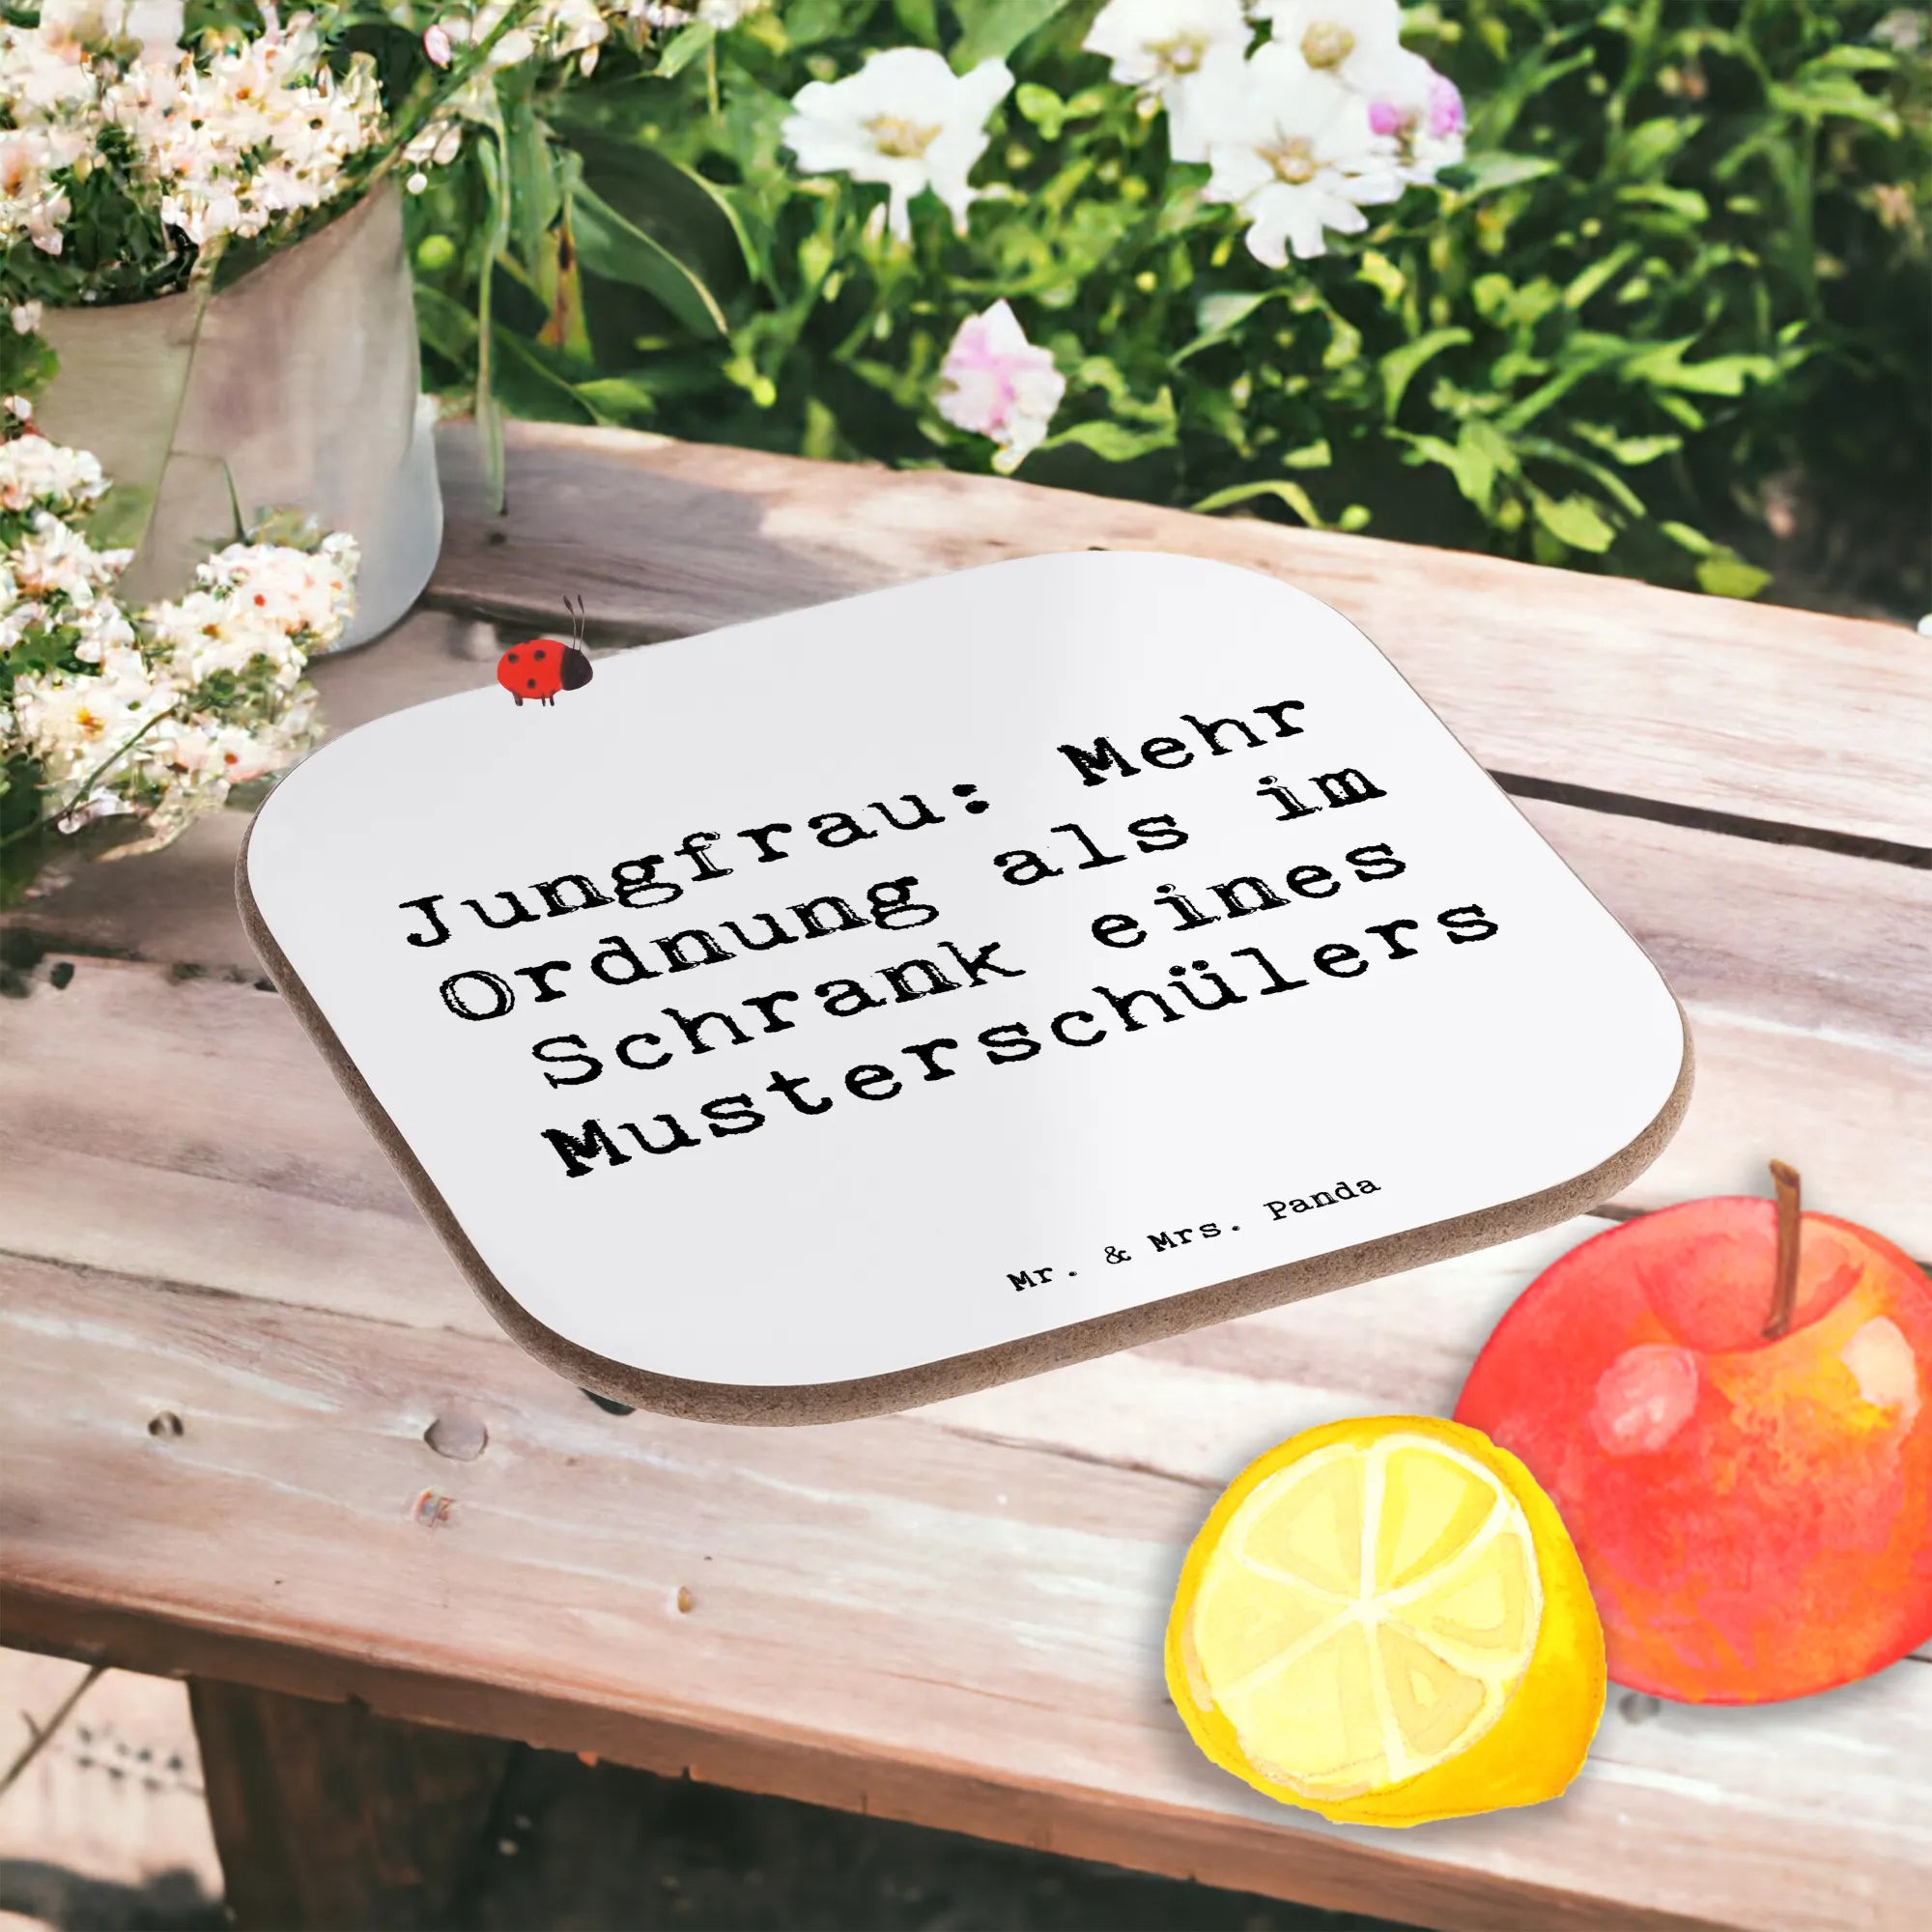 Jungfrau: Mehr
Ordnung als im
Schrank eines
Musterschülers
Mr. & Mrs. Panda